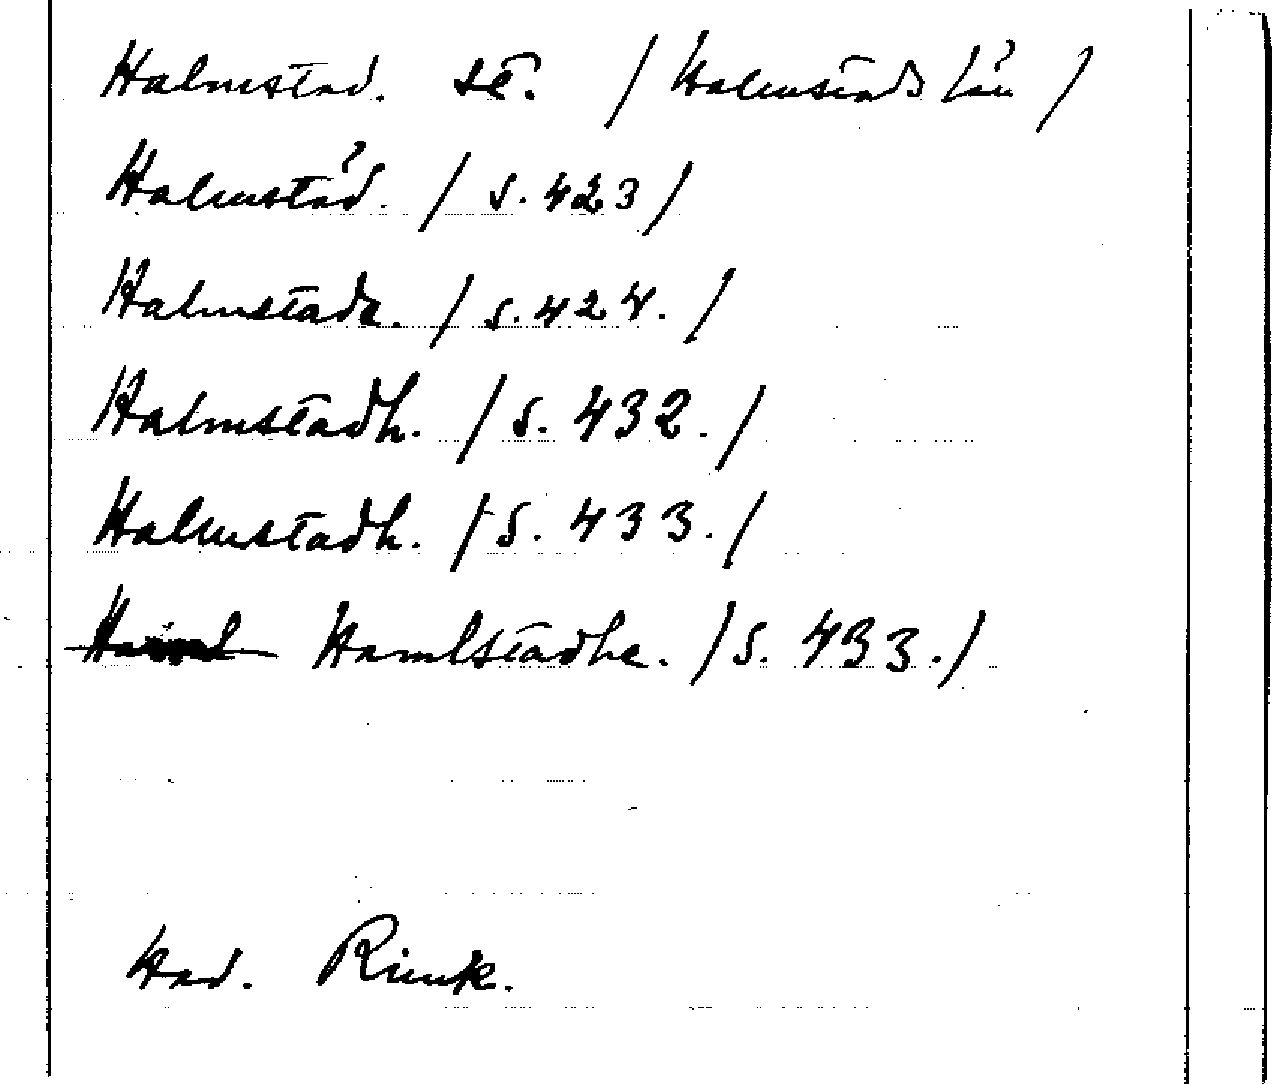 Halmstad. st. / Halmstads län /
Halmstad. / s. 423 /
Halmstade. / s. 424. /
Halmstadh. / s. 432. /
Halmstadh. / s. 433. /
Hamlstadhe. / s. 433. /
Had. Rimk.